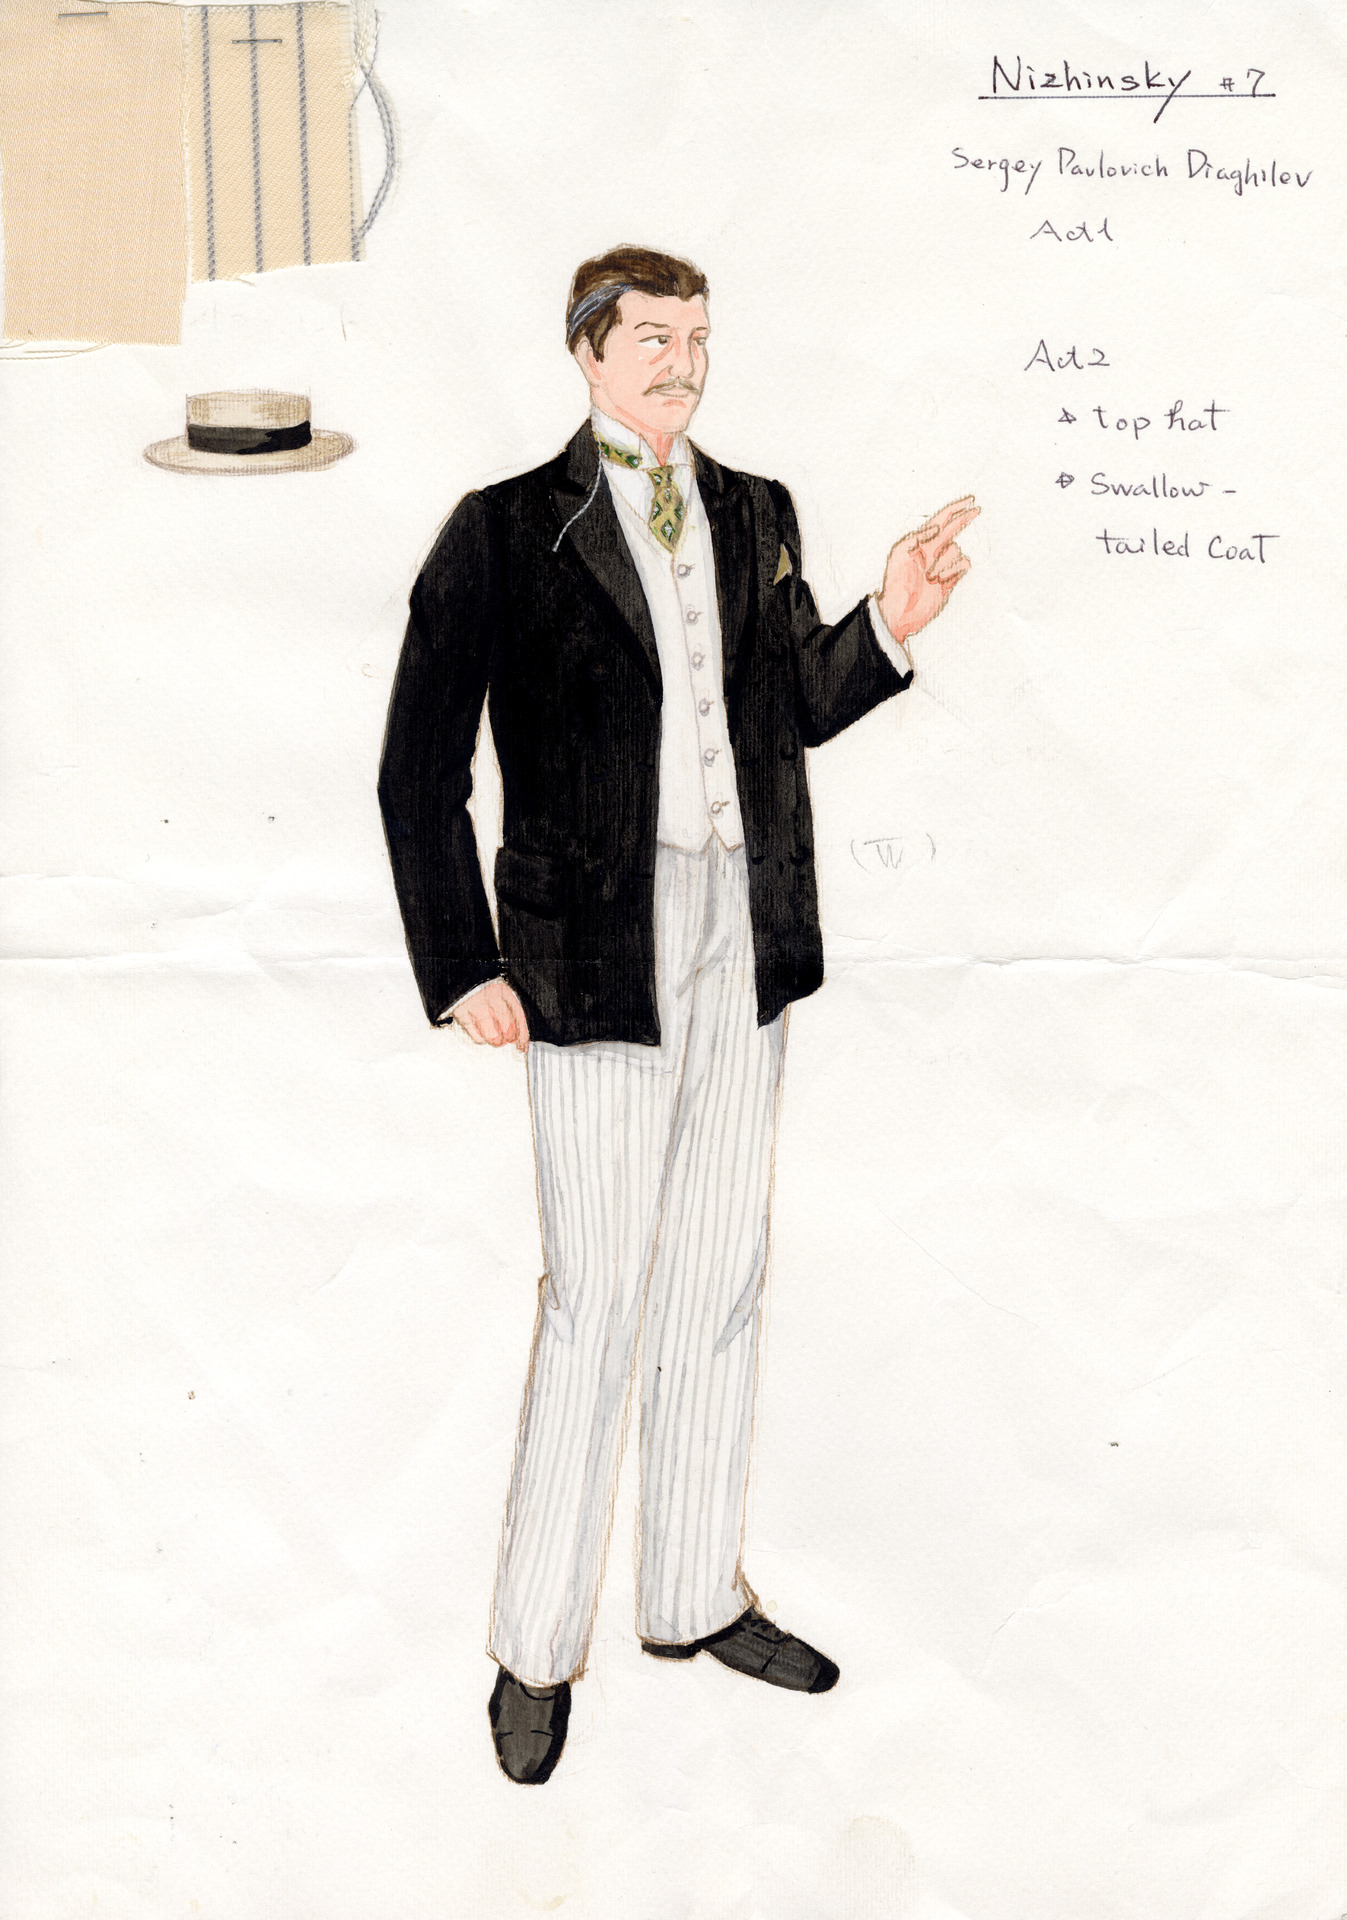 Nizhinsky #7
Sergey Pavlovich Diaghilev
Act1
Act2
top hat
Swallow-
tailed Coat
(W)